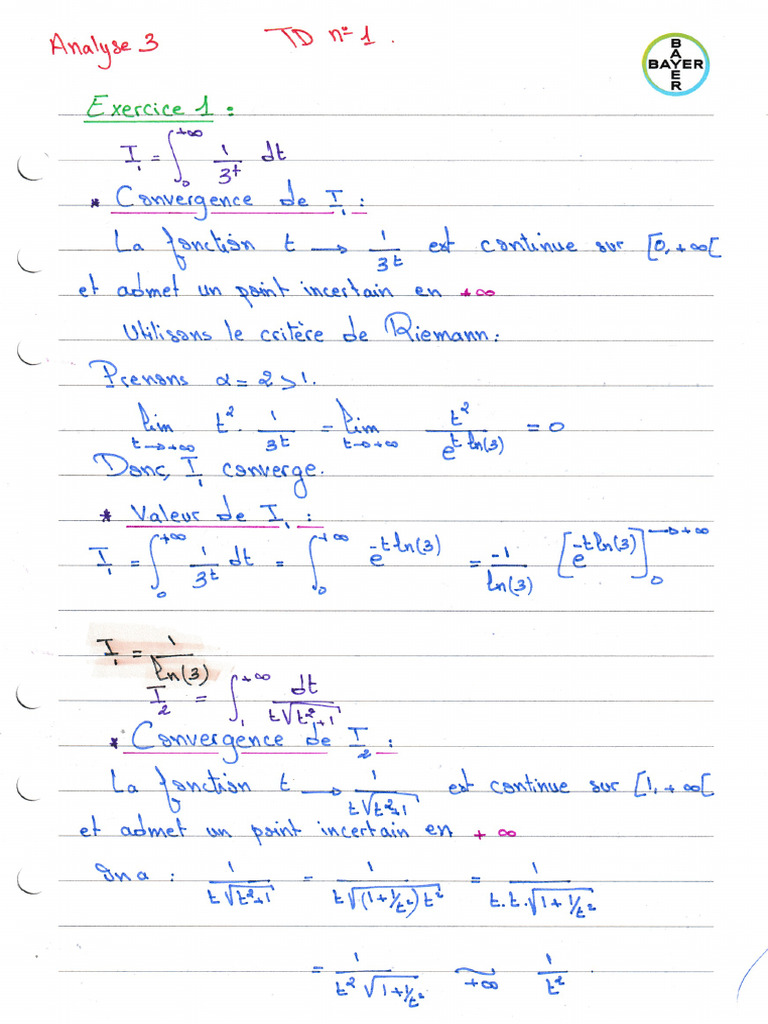 Analyse 3 TD n° 1.
BAYER
BAYER
Exercice 1 :
I₁ = ∫₀^{+∞} 1/3^t dt
* Convergence de I₁ :
La fonction t → 1/3^t est continue sur [0, +∞[
et admet un point incertain en +∞
Utilisons le critère de Riemann:
Prenons α = 2 > 1.
lim_{t→+∞} t² · 1/3^t = lim_{t→+∞} t²/e^{t ln(3)} = 0
Donc, I₁ converge.
* Valeur de I₁ :
I₁ = ∫₀^{+∞} 1/3^t dt = ∫₀^{+∞} e^{-t ln(3)} = -1/ln(3) [e^{-t ln(3)}]₀^{→+∞}
I₁ = 1/ln(3)
I₂ = ∫₁^{+∞} dt/(t√(t²+1))
* Convergence de I₂ :
La fonction t → 1/(t√(t²+1)) est continue sur [1, +∞[
et admet un point incertain en +∞
On a : 1/(t√(t²+1)) = 1/(t√((1+1/t²)t²)) = 1/(t.t.√(1+1/t²))
= 1/(t²√(1+1/t²)) ~_{+∞} 1/t².